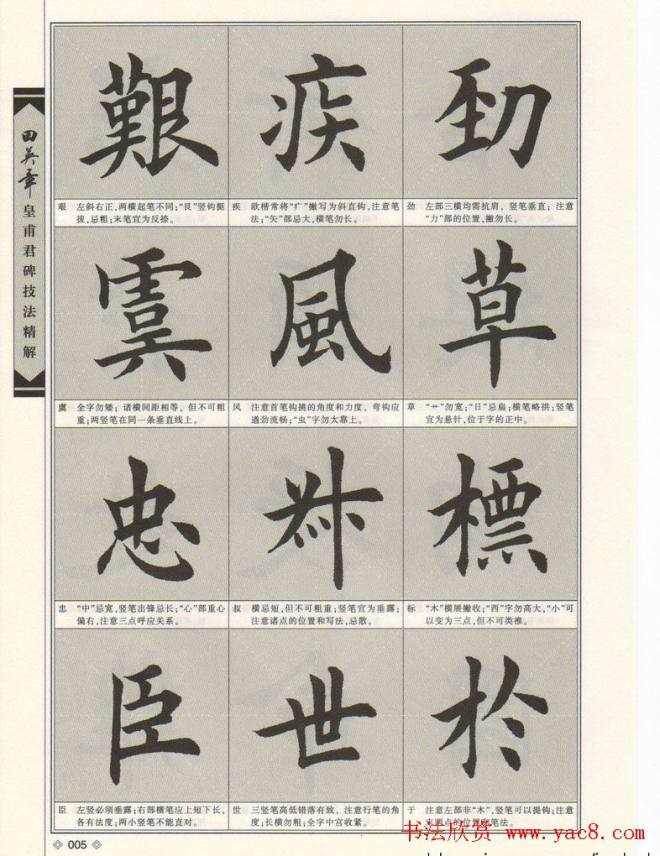 田英章
皇甫君碑技法精解
艱 疾 勁
艰 左斜右正,两横起笔不同;“艮”竖钩挺
拔,忌粗;末笔宜为反捺。
疾 欧楷常将“疒”撇写为斜直钩,注意笔
法;“矢”部忌大,横笔勿长。
劲 左部三横均需抗肩,竖笔垂直;注意
“力”部的位置,撇勿长。
虞 風 草
虞 全字勿矮;诸横间距相等,但不可粗
重;两竖笔在同一条垂直线上。
风 注意首笔钩挑的角度和力度,弯钩应
遒劲流畅;“虫”字勿太靠上。
草 “艹”勿宽;“日”忌扁;横笔略拱;竖笔
宜为悬针,位于字的正中。
忠 叔 標
忠 “中”忌宽,竖笔出锋忌长;“心”部重心
偏右,注意三点呼应关系。
叔 横忌短,但不可粗重;竖笔宜为垂露;
注意诸点的位置和写法,忌散。
标 “木”横展撇收;“西”字勿高大,“小”可
以变为三点,但不可类推。
臣 世 於
臣 左竖必须垂露;右部横笔应上短下长,
各有法度;两小竖笔不能直对。
世 三竖笔高低错落有致,注意行笔的角
度;长横勿粗;全字中宫收紧。
于 注意左部非“木”,竖笔可以提钩;注意
末两点的位置和笔法。
005
书法欣赏 www.yac8.com